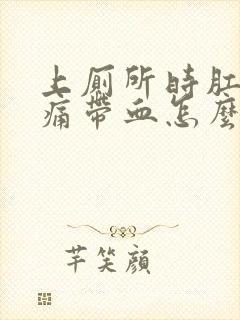 上厕所时肛
痛带血怎麽
芊笑顔